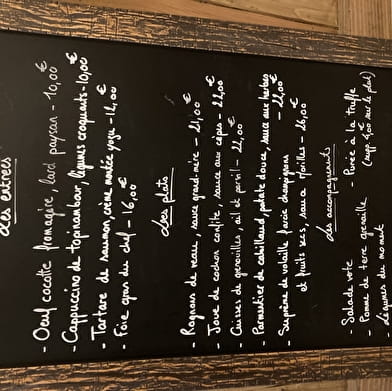 Les entrées
- Oeuf cocotte fromagère, lard paysan - 10,00 €
- Cappuccino de topinambour, légumes croquants - 10,00 €
- Tartare de saumon, crème montée yuzu - 12,00 €
- Foie gras du chef - 16,00 €
Les plats
- Rognons de veau, sauce grand-mère - 21,00 €
- Joue de cochon confite, sauce aux cèpes - 22,00 €
- Cuisses de grenouilles, ail et persil - 22,00 €
- Parmentier de cabillaud, patate douce, sauce aux herbes - 22,00 €
- Suprême de volaille farcie champignons
et fruits secs, sauce morilles - 26,00 €
Les accompagnements
- Salade verte
- Purée à la truffe
- Pomme de terre grenaille
(supp 2,00 € sur le plat)
- Légumes du moment